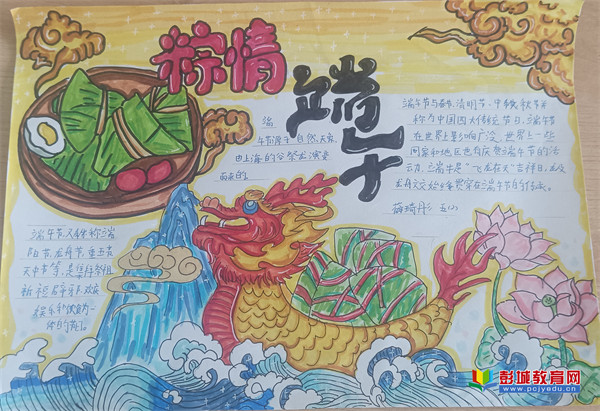 粽情
端午
端
午节源于自然天象
由上海的
演变
而来的
端午节与春节、清明节、中秋节并
称为中国四大传统节日。端午节
在世界上影响广泛,世界上一些
国家和地区也有庆贺端午节的活
动。端午是“飞龙在天”吉祥日,
龙舟文化始终贯穿在端午节的传承。
五(2)
端午节,又称端
阳节、龙舟节、重五节
天中节等,是集拜神
祈福辟邪、欢庆
娱乐和饮食为一
体的节。
彭城教育网
www.pcjyedu.cn